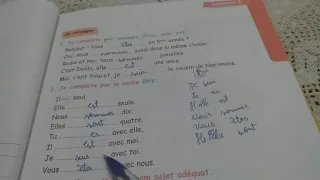 1. Je complète par
Bonjour ! Vous êtes en 5ème année ?
Oui, nous sommes aussi dans la même classe.
nous sommes jumelles.
C'est Dalila, elle est une amie
Moi, c'est Youcef, je suis le cousin de Marianne.
2. Je complète par le verbe être
Il est seul.
Elle est seule.
Nous sommes dix.
Elles sont quatre.
Tu es avec elle.
Il est avec moi.
Je suis avec toi.
Vous êtes avec nous.
être
Je suis
tu es
il/elle est
nous sommes
vous êtes
ils/elles sont
nom sujet adéquat.